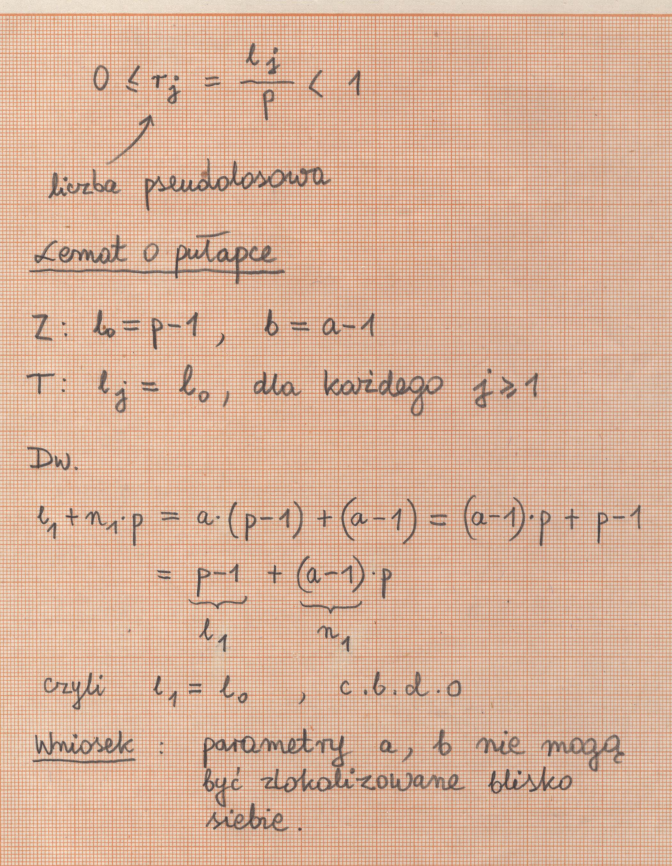 0 ≤ r_j = l_j / p < 1
liczba pseudolosowa
Lemat o pułapce
Z: l₀ = p-1 , b = a-1
T: l_j = l₀, dla każdego j ≥ 1
Dw.
l₁ + n₁·p = a·(p-1) + (a-1) = (a-1)·p + p-1
= p-1 + (a-1)·p
l₁ n₁
czyli l₁ = l₀ , c.b.d.o
Wniosek : parametry a, b nie mogą
być zlokalizowane blisko
siebie.